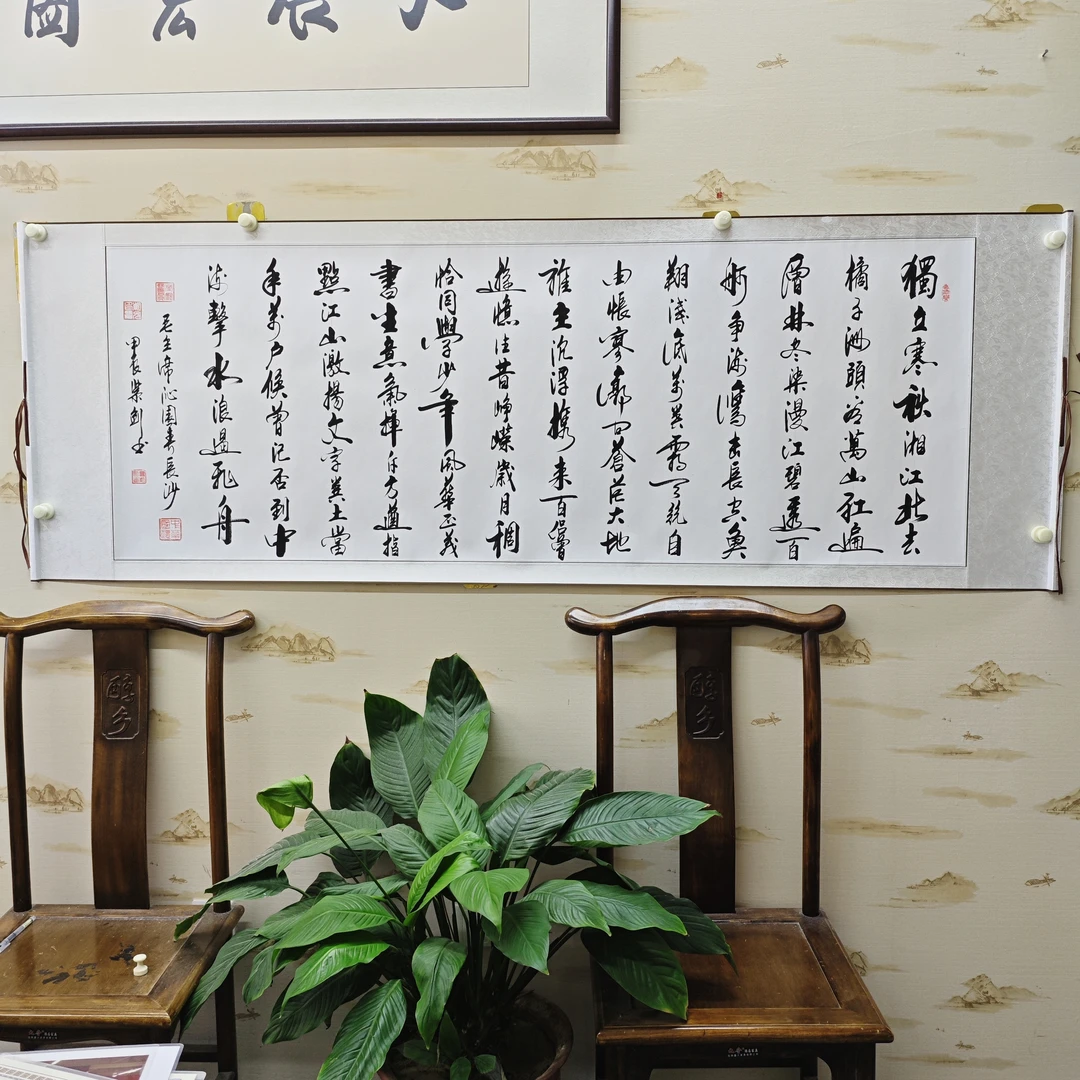 大展宏圖
獨立寒秋湘江北去
橘子洲頭看萬山红遍
層林尽染漫江碧透百
舸争流鷹击長空魚
翔淺底万类霜天競自
由悵寥廓问蒼茫大地
誰主沉浮携来百侣曾
遊憶往昔崢嶸歲月稠
恰同學少年風華正茂
書生意氣揮斥方遒指
點江山激揚文字糞土當
年万户侯曾记否到中
流擊水浪遏飛舟
毛主席沁園春長沙
甲辰柴剑书